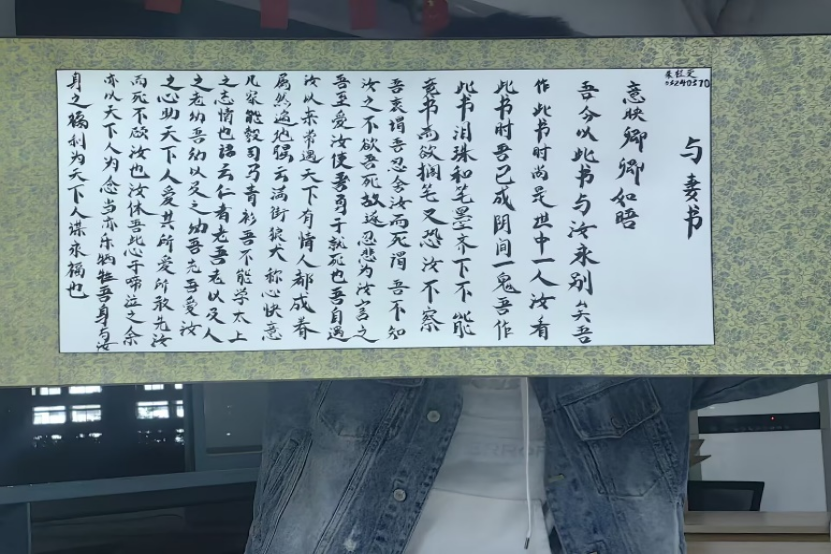 与妻书
意映卿卿如晤
吾今以此书与汝永别矣吾
作此书时尚是世中一人汝看
此书时吾已成阴间一鬼吾作
此书泪珠和笔墨齐下不能
竟书而欲搁笔又恐汝不察
吾衷谓吾忍舍汝而死谓吾不知
汝之不欲吾死故遂忍悲为汝言之
吾至爱汝使吾勇于就死也吾自遇
汝以来常遇天下有情人都成眷
属然遍地腥云满街狼犬称心快意
几家能彀司马青衫吾不能学太上
之忘情也语云仁者老吾老以及人
之老幼吾幼以及之幼吾充吾爱汝
之心助天下人爱其所爱所敢先汝
而死不顾汝也汝体吾此心于啼泣之余
亦以天下人为念当亦乐牺牲吾身与汝
身之福利为天下人谋永福也